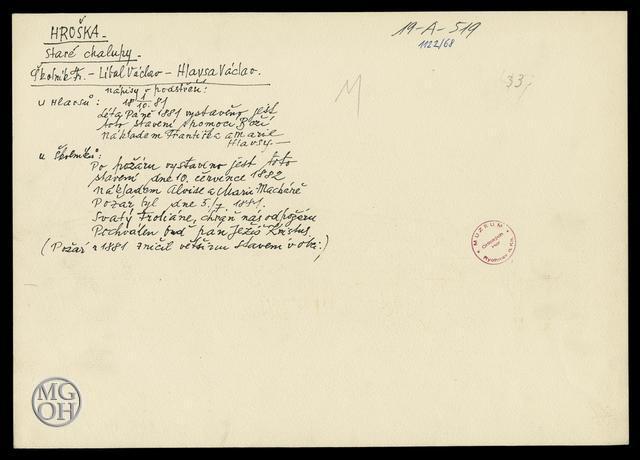 HROŠKA.
19-A-519
1122/68
Staré chalupy.
Školník Fr. - Líbal Václav - Hlavsa Václav.
M
33,
nápisy v podstřeší:
u Hlavsů: 18 1/10. 81
Léta Páně 1881 vystavěno jest
toto stavení s pomocí Boží
nákladem Františka a Marie
Hlavsy.—
u Školníků:
Po požáru vystavíno jest toto
stavení dne 10. července 1882
nákladem Aloise a Marie Macháně
Požár byl dne 5./7 1881.
Svatý Froliáne, chraň nás od požáru
Pochválen buď pán Ježíš Kristus.
(Požár r 1881 zničil většinu stavení v obci.)
MUZEUM
Orlických hor
Rychnov n. Kn.
MG
OH